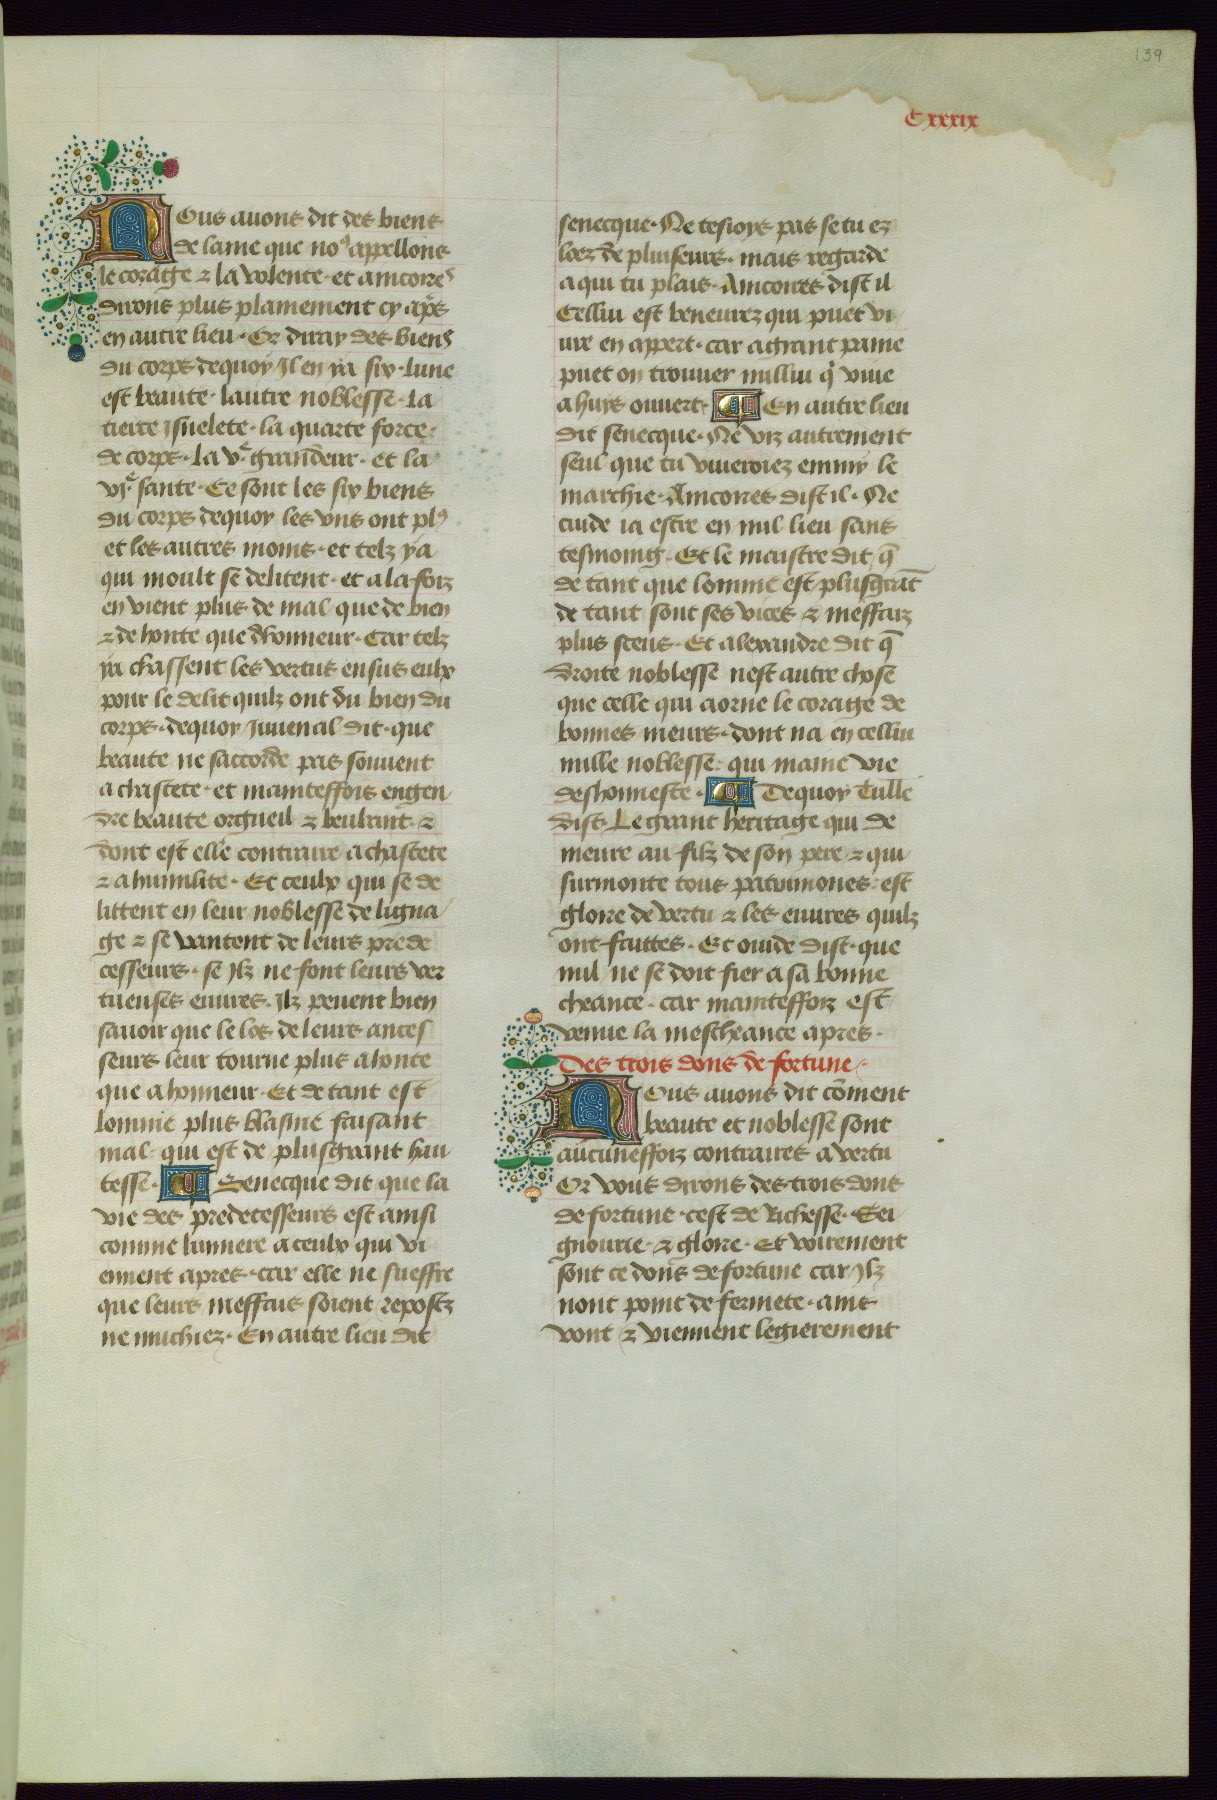 139
Cxxxix
Nous auons dit des biens
de lame que no9 appellons
le corage ⁊ la volente · et aincores
dirons plus plainement cy ap̃s
en autre lieu · Or diray des biens
du corps dequoy Jl en ya six · lune
est beaute · lautre noblesse · La
tierce jsnelete · la quarte force
de corps · La ve grandeur · et la
vje sante · Ce sont les six biens
du corps dequoy les vns ont pl9
et les autres moins · et telz ya
qui moult se delitent · et a la foiz
en vient plus de mal que de bien
⁊ de honte que dhonneur · Car telz
ya chassent les vertus ensus eulx
pour le delit quilz ont du bien du
corps · dequoy Juuenal dit · que
beaute ne saccorde pas souuent
a chastete · et mainteffois engen
dre beaute orgueil ⁊ beubant · ⁊
dont est elle contraire a chastete
⁊ a humilite · Et ceulx qui se de
littent en leur noblesse de ligna
ge ⁊ se vantent de leurs prede
cesseurs · se Jlz ne font leurs ver
tueuses euures · Jlz peuent bien
sauoir que le los de leurs ances
seurs leur tourne plus a honte
que a honneur · Et de tant est
lomme plus blasme faisant
mal · qui est de plusgrant hau
tesse · Senecque dit que la
vie des predecesseurs est ainsi
comme lumiere a ceulx qui vi
ennent apres · car elle ne sueffre
que leurs meffais soient repostz
ne muchiez · En autre lieu dit
senecque · Ne tesioys pas se tu ez
loez de pluiseurs · mais regarde
a qui tu plais · Aincores dist il
Cellui est beneurez qui puet vi
ure en appert · car a grant paine
puet on trouuer nullui q̃ viue
a huys ouuert · En autre lieu
dit senecque · Ne viz autrement
seul que tu viueroiez emmy le
marchie · Aincores dist il · Ne
cuide ia estre en nul lieu sans
tesmoing · Et le maistre dit q̃
de tant que lomme est plusgrãt
de tant sont ses vices ⁊ meffaiz
plus sceus · Et alexandre dit q̃
droite noblesse nest autre chose
que celle qui aorne le corage de
bonnes meurs · dont na en cellui
nulle noblesse · qui maine vie
deshonneste · Dequoy Tulle
dist · Le grant heritage qui de
meure au filz de son pere · ⁊ qui
surmonte tous patrimones · est
gloire de vertu ⁊ les euures quilz
ont faittes · Et ouide dist · que
nul ne se doit fier a sa bonne
cheance · car mainteffoiz est
venue la mescheance apres ·
Des trois dons de fortune
Nous auons dit cõment
beaute et noblesse sont
aucuneffoiz contraires a vertu
Or vous dirons des trois dons
de fortune · cest de Richesse · Sei
gnourie · ⁊ gloire · Et voirement
sont ce dons de fortune car Jlz
nont point de fermete · ains
vont ⁊ viennent legierement